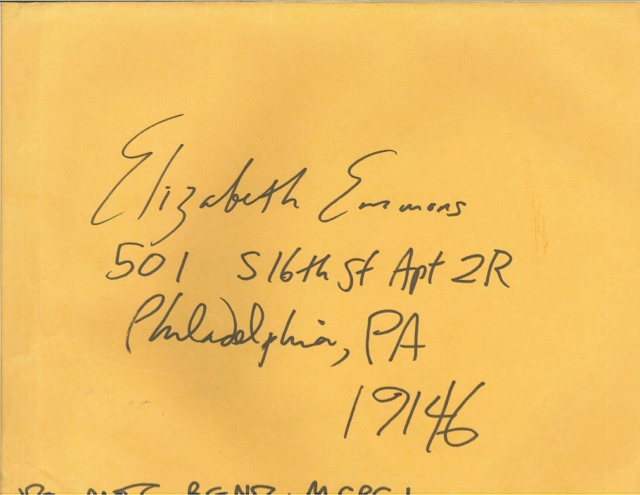 Elizabeth Emmons
501 S 16th St Apt 2R
Philadelphia, PA
19146